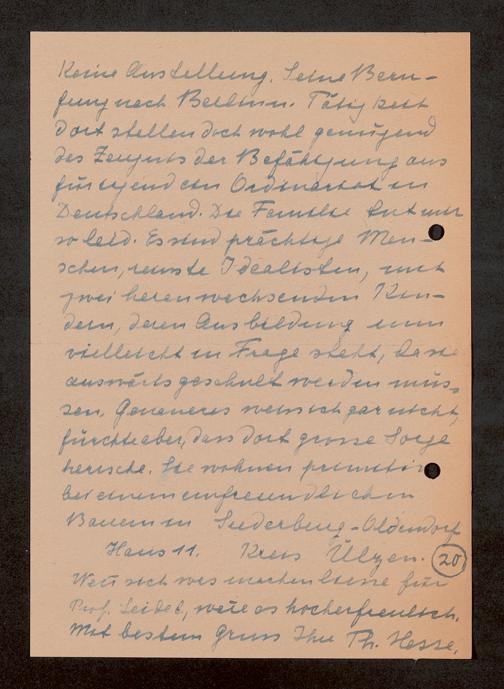 Keine Anstellung. Seine Beru-
fung nach Berlin u. Tätigkeit
dort stellen doch wohl genügend
das Zeugnis der Befähigung aus
für irgend ein Ordinariat in
Deutschland. Die Familie tut mir
so leid. Es sind prächtige Men-
schen, reinste Idealisten, mit
zwei heranwachsenden Kin-
dern, deren Ausbildung nun
vielleicht in Frage steht, da sie
auswärts geschult werden müs-
sen. Genaueres weiss ich gar nicht,
fürchte aber, dass dort grosse Sorge
herrsche. Sie wohnen primitiv
bei einem unfreundlichen
Bauern in Suderburg-Oldendorf
Haus 11. Kreis Ülzen. 20
Wenn sich was machen liesse für
Prof. Seidel, wäre es hocherfreulich.
Mit bestem Gruss Ihr Th. Hesse.